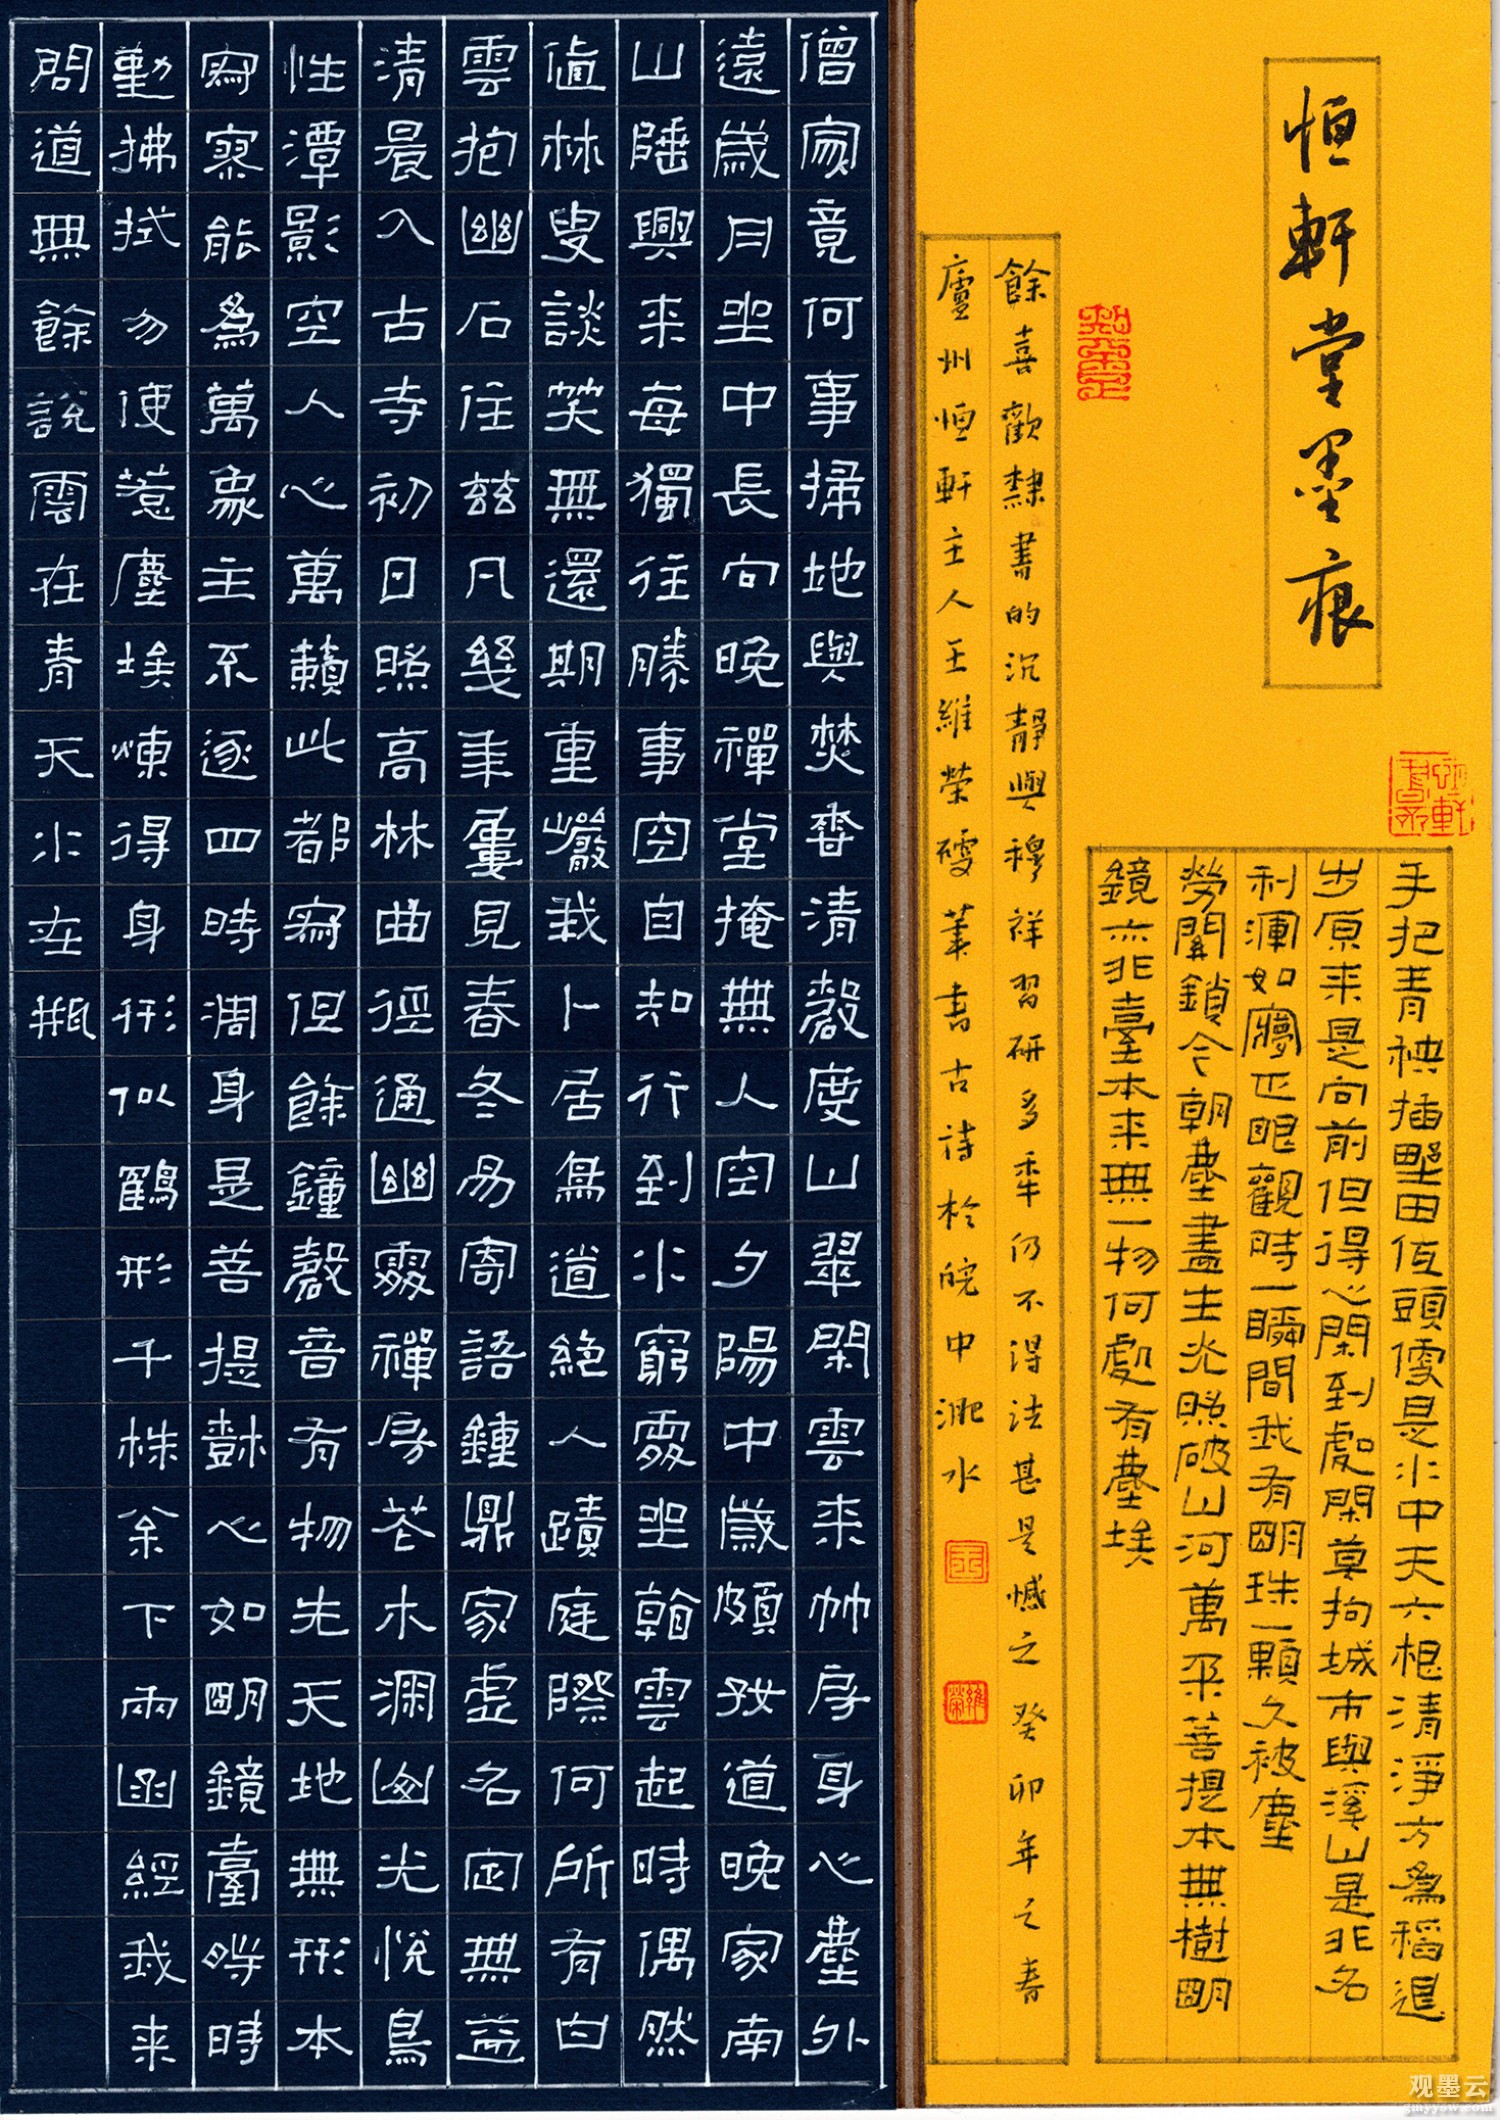 恒軒堂墨痕
手把青秧插野田低頭便是水中天六根清淨方為稻退
步原來是向前但得心閑到處閑莫拘城市與溪山是非名
利渾如夢正眼觀時一瞬間我有明珠一顆久被塵
勞關鎖今朝塵盡生光照破山河萬朵菩提本無樹明
鏡亦非臺本來無一物何處有塵埃
餘喜歡隸書的沉靜與穆祥習研多年仍不得法甚是憾之癸卯年之春
廬州恒軒主人王維榮硬筆書古詩於皖中淝水
王
維榮
僧家竟何事掃地與焚香清磬度山翠閑雲來竹房身心塵外
遠歲月坐中長向晚禪堂掩無人空夕陽中歲頗好道晚家南
山陲興來每獨往勝事空自知行到水窮處坐看雲起時偶然
值林叟談笑無還期重巖我卜居鳥道絕人蹟庭際何所有白
雲抱幽石住茲凡幾年屢見春冬易寄語鍾鼎家虛名定無益
清晨入古寺初日照高林曲徑通幽處禪房花木深山光悅鳥
性潭影空人心萬籟此都寂但餘鐘磬音有物先天地無形本
寂寥能為萬象主不逐四時凋身是菩提樹心如明鏡臺時時
勤拂拭勿使惹塵埃煉得身形似鶴形千株松下兩函經我來
問道無餘說雲在青天水在瓶
观墨云
gmyysw.com